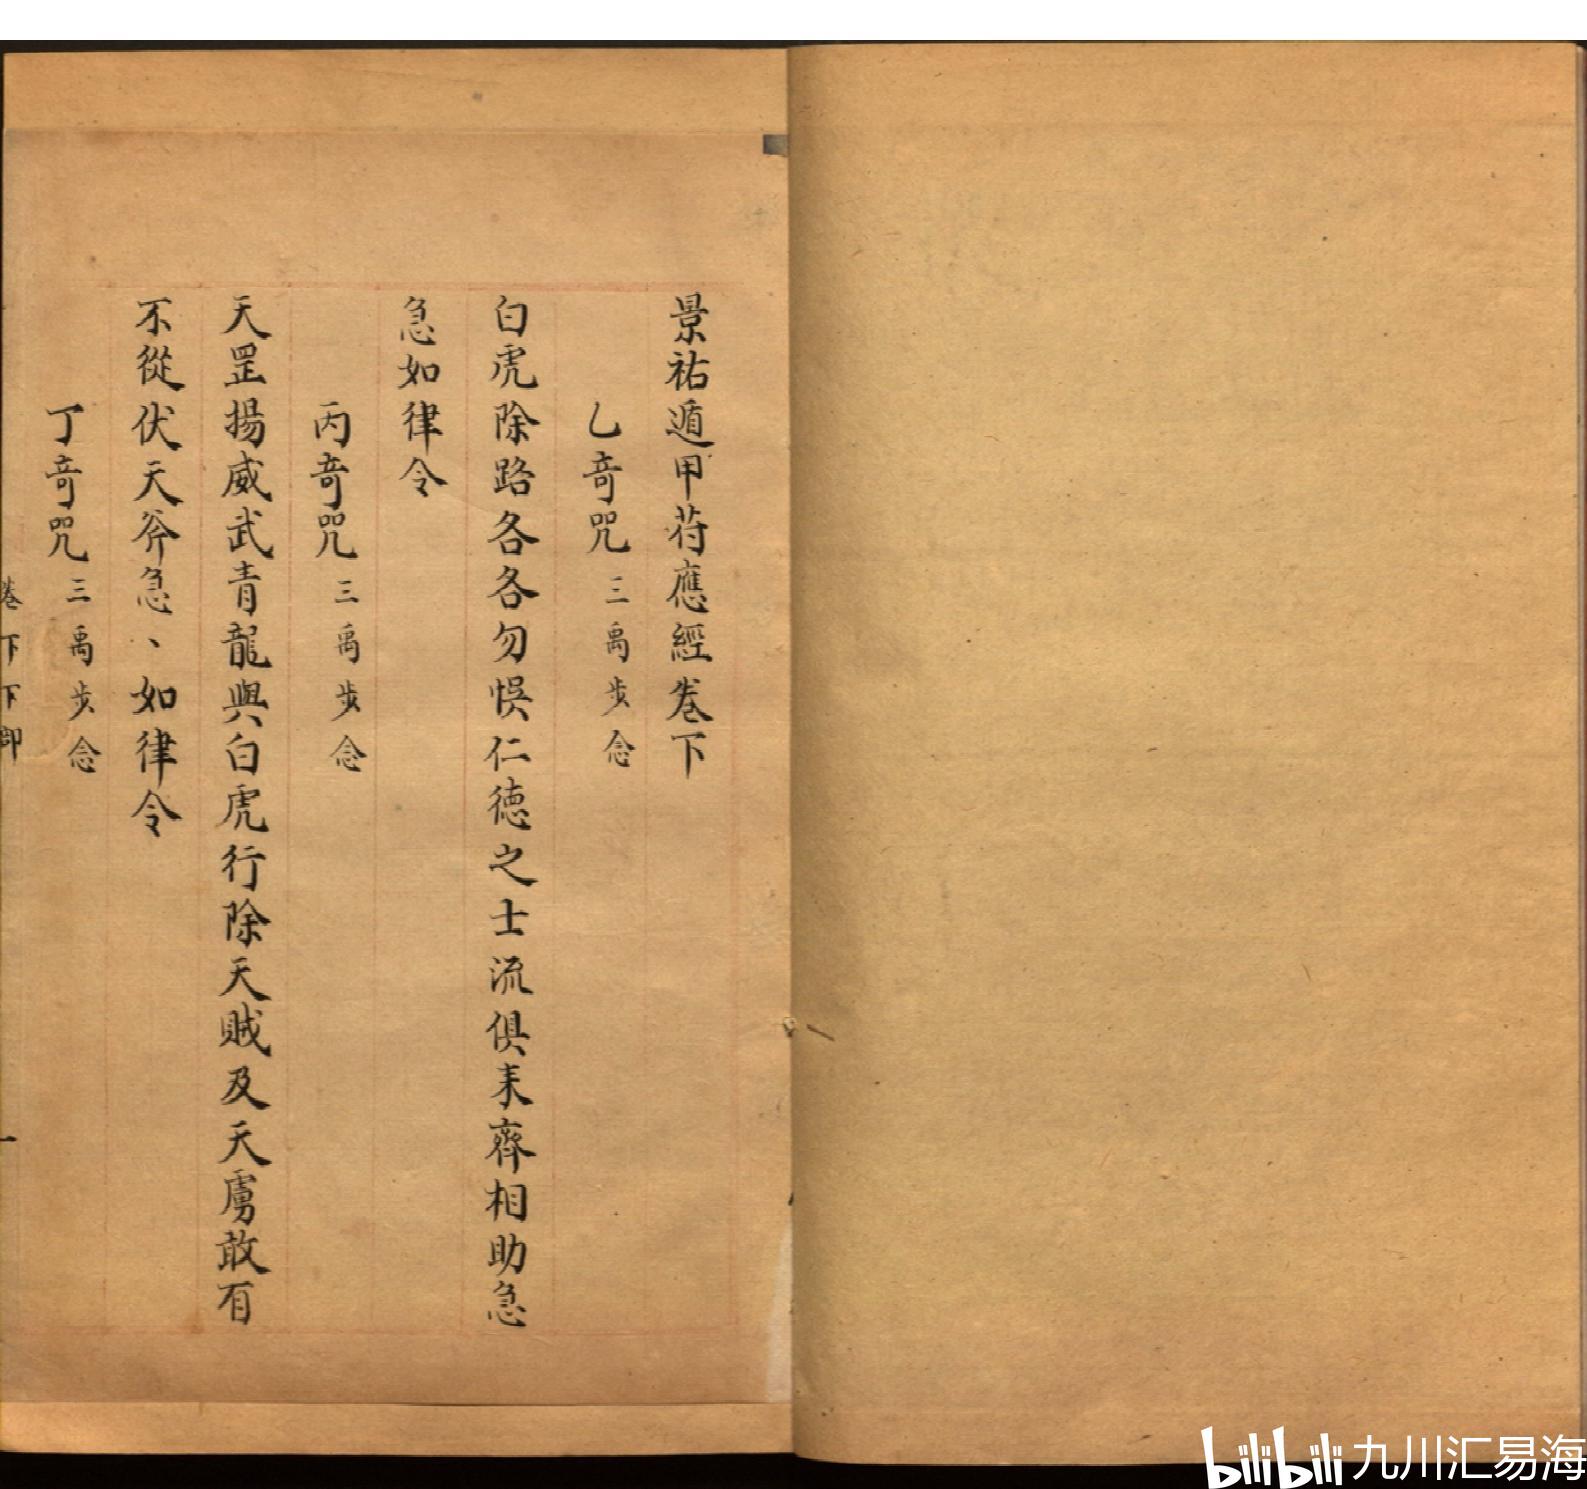 景祐遁甲苻應經卷下
乙竒咒 三禹步念
白虎除路各各勿悞仁德之士流俱来齊相助急
急如律令
丙竒咒 三禹步念
天罡揚威武青龍與白虎行除天賊及天虜敢有
不從伏天斧急、如律令
丁竒咒 三禹步念
卷下下卽 一
bilibili 九川汇易海